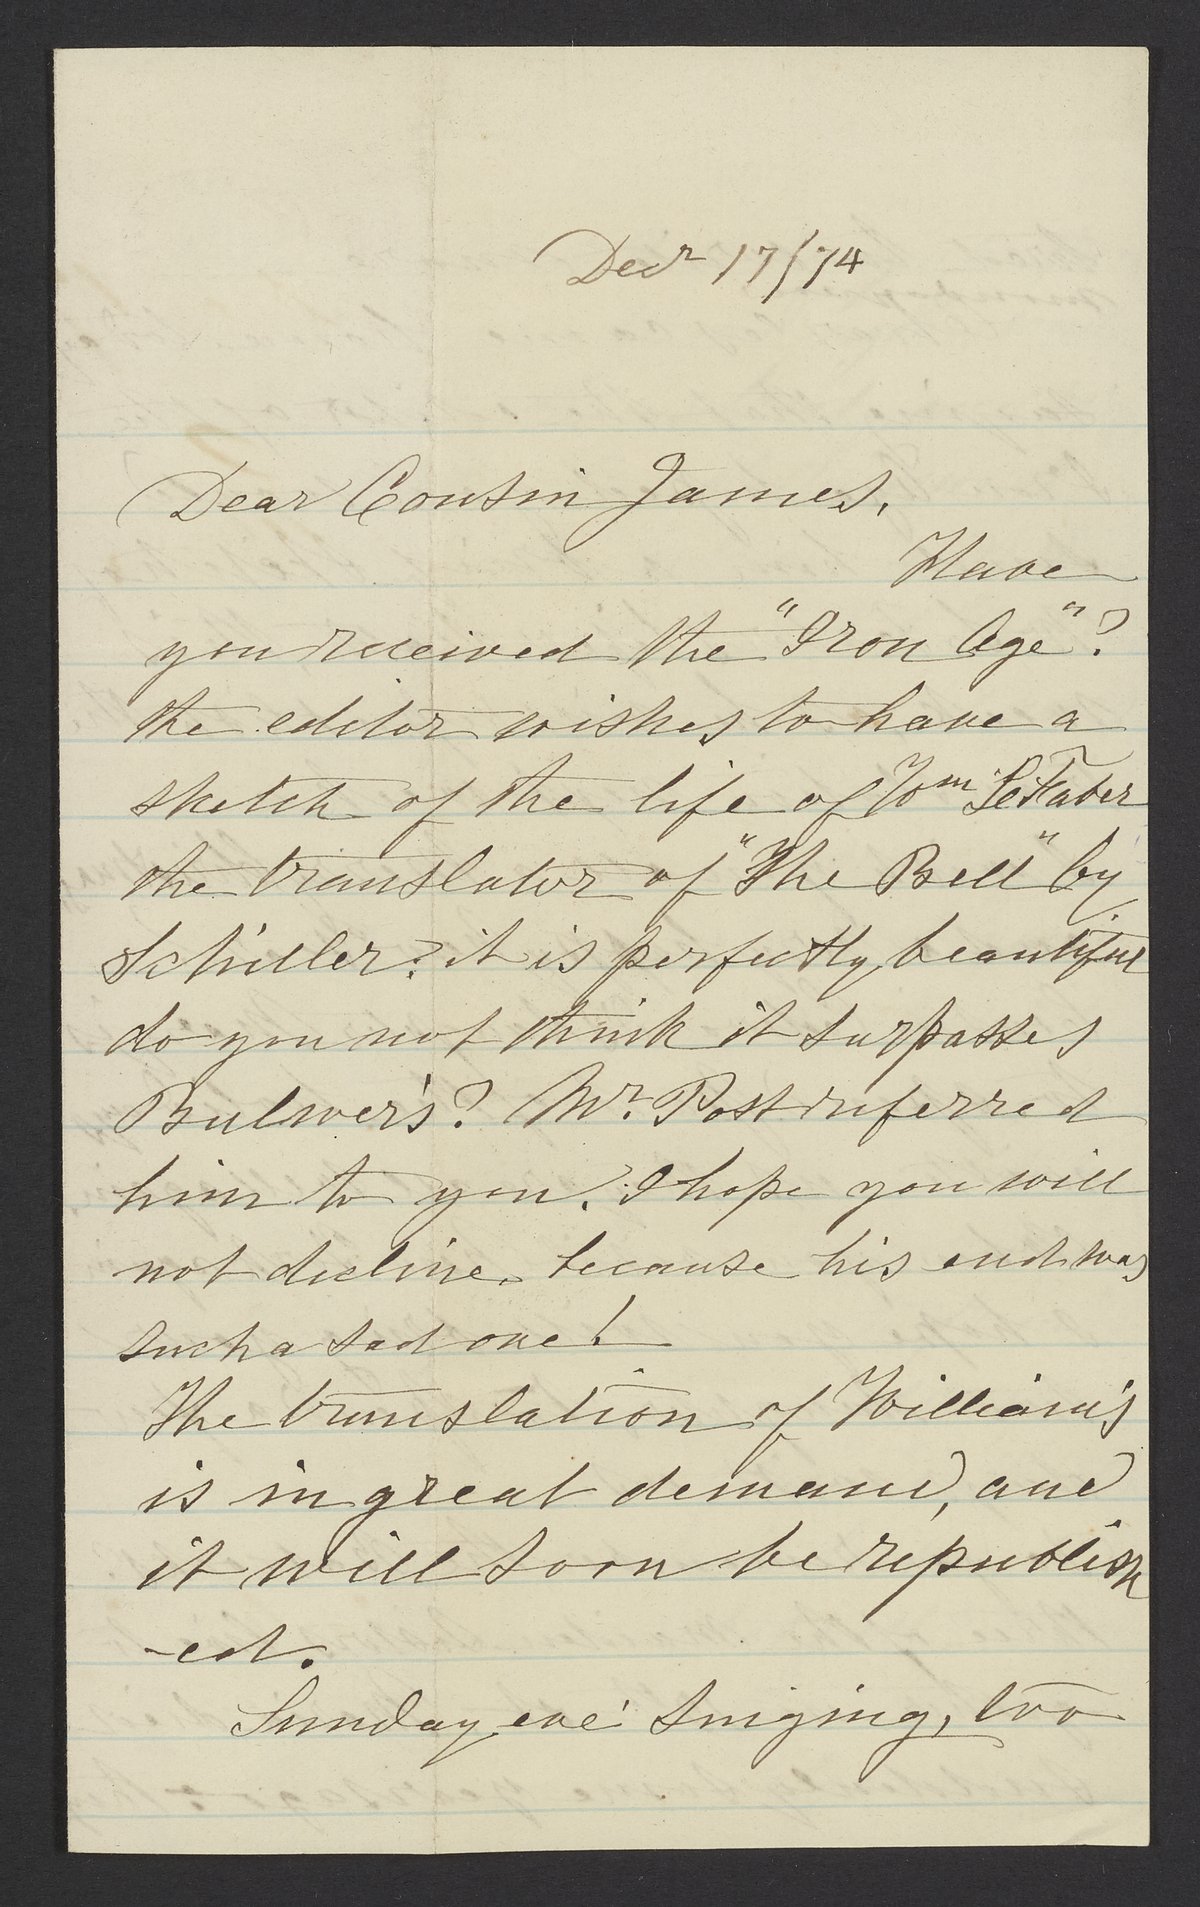 Decr 17/74
Dear Cousin James,
Have
you received the "Iron Age"?
the editor wishes to have a
sketch of the life of Wm LeFaber
the translator of "The Bell" by
Schiller? it is perfectly beautiful
do you not think it surpasses
Bulwer's? Mr. Post referred
him to you. I hope you will
not decline, because his end was
such a sad one!
The translation of William's
is in great demand, and
it will soon be republish
-ed.
Sunday eve' singing, too